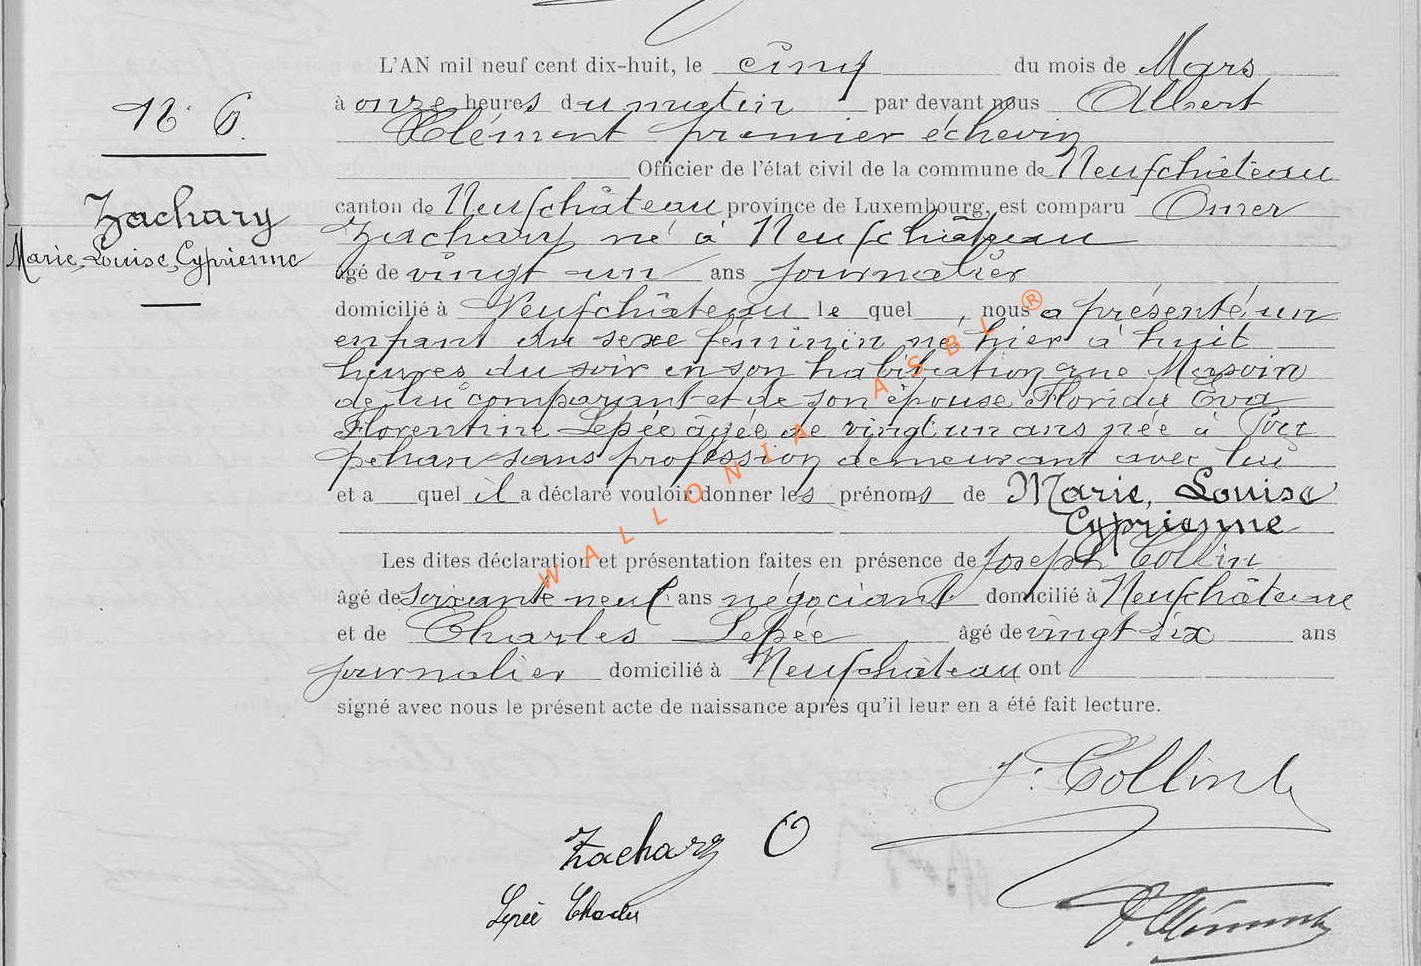 N° 6.
Zachary
Marie-Louise, Cyprienne
L'AN mil neuf cent dix-huit, le cinq du mois de Mars
à onze heures du matin par devant nous Albert
Clément premier échevin
Officier de l'état civil de la commune de Neufchâteau
canton de Neufchâteau province de Luxembourg, est comparu Omer
Zachary né à Neufchâteau
âgé de vingt un ans journalier
domicilié à Neufchâteau le quel, nous a présenté un
enfant du sexe féminin né hier à huit
heures du soir en son habitation rue
de lui comparant et de son épouse Florida Eva
Florentine Lepée âgée de vingt un ans née à Pou
pehan sans profession demeurant avec lui
et a quel il a déclaré vouloir donner les prénoms de Marie, Louise
Cyprienne
Les dites déclaration et présentation faites en présence de Joseph Collin
âgé de soixante neuf ans négociant domicilié à Neufchâteau
et de Charles Lepée âgé de vingt six ans
journalier domicilié à Neufchâteau ont
signé avec nous le présent acte de naissance après qu'il leur en a été fait lecture.
J. Collin
Zachary O
Lepée Charles
A. Clément
WALLONIA ASBL ®